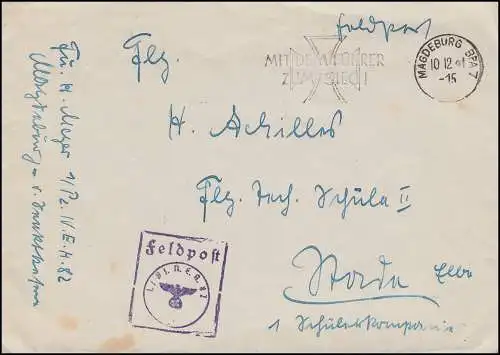 Feldpost
MIT DEM FÜHRER
ZUM SIEG!
MAGDEBURG BPA 7
10 12 41
-15
Flg.
H. Achilles
Flg. Tech. Schule II
Stade Elbe
1 Schülerkompanie
Feldpost
Fu. H. Meyer 1/Pz. N. E. A. 82
Magdeburg